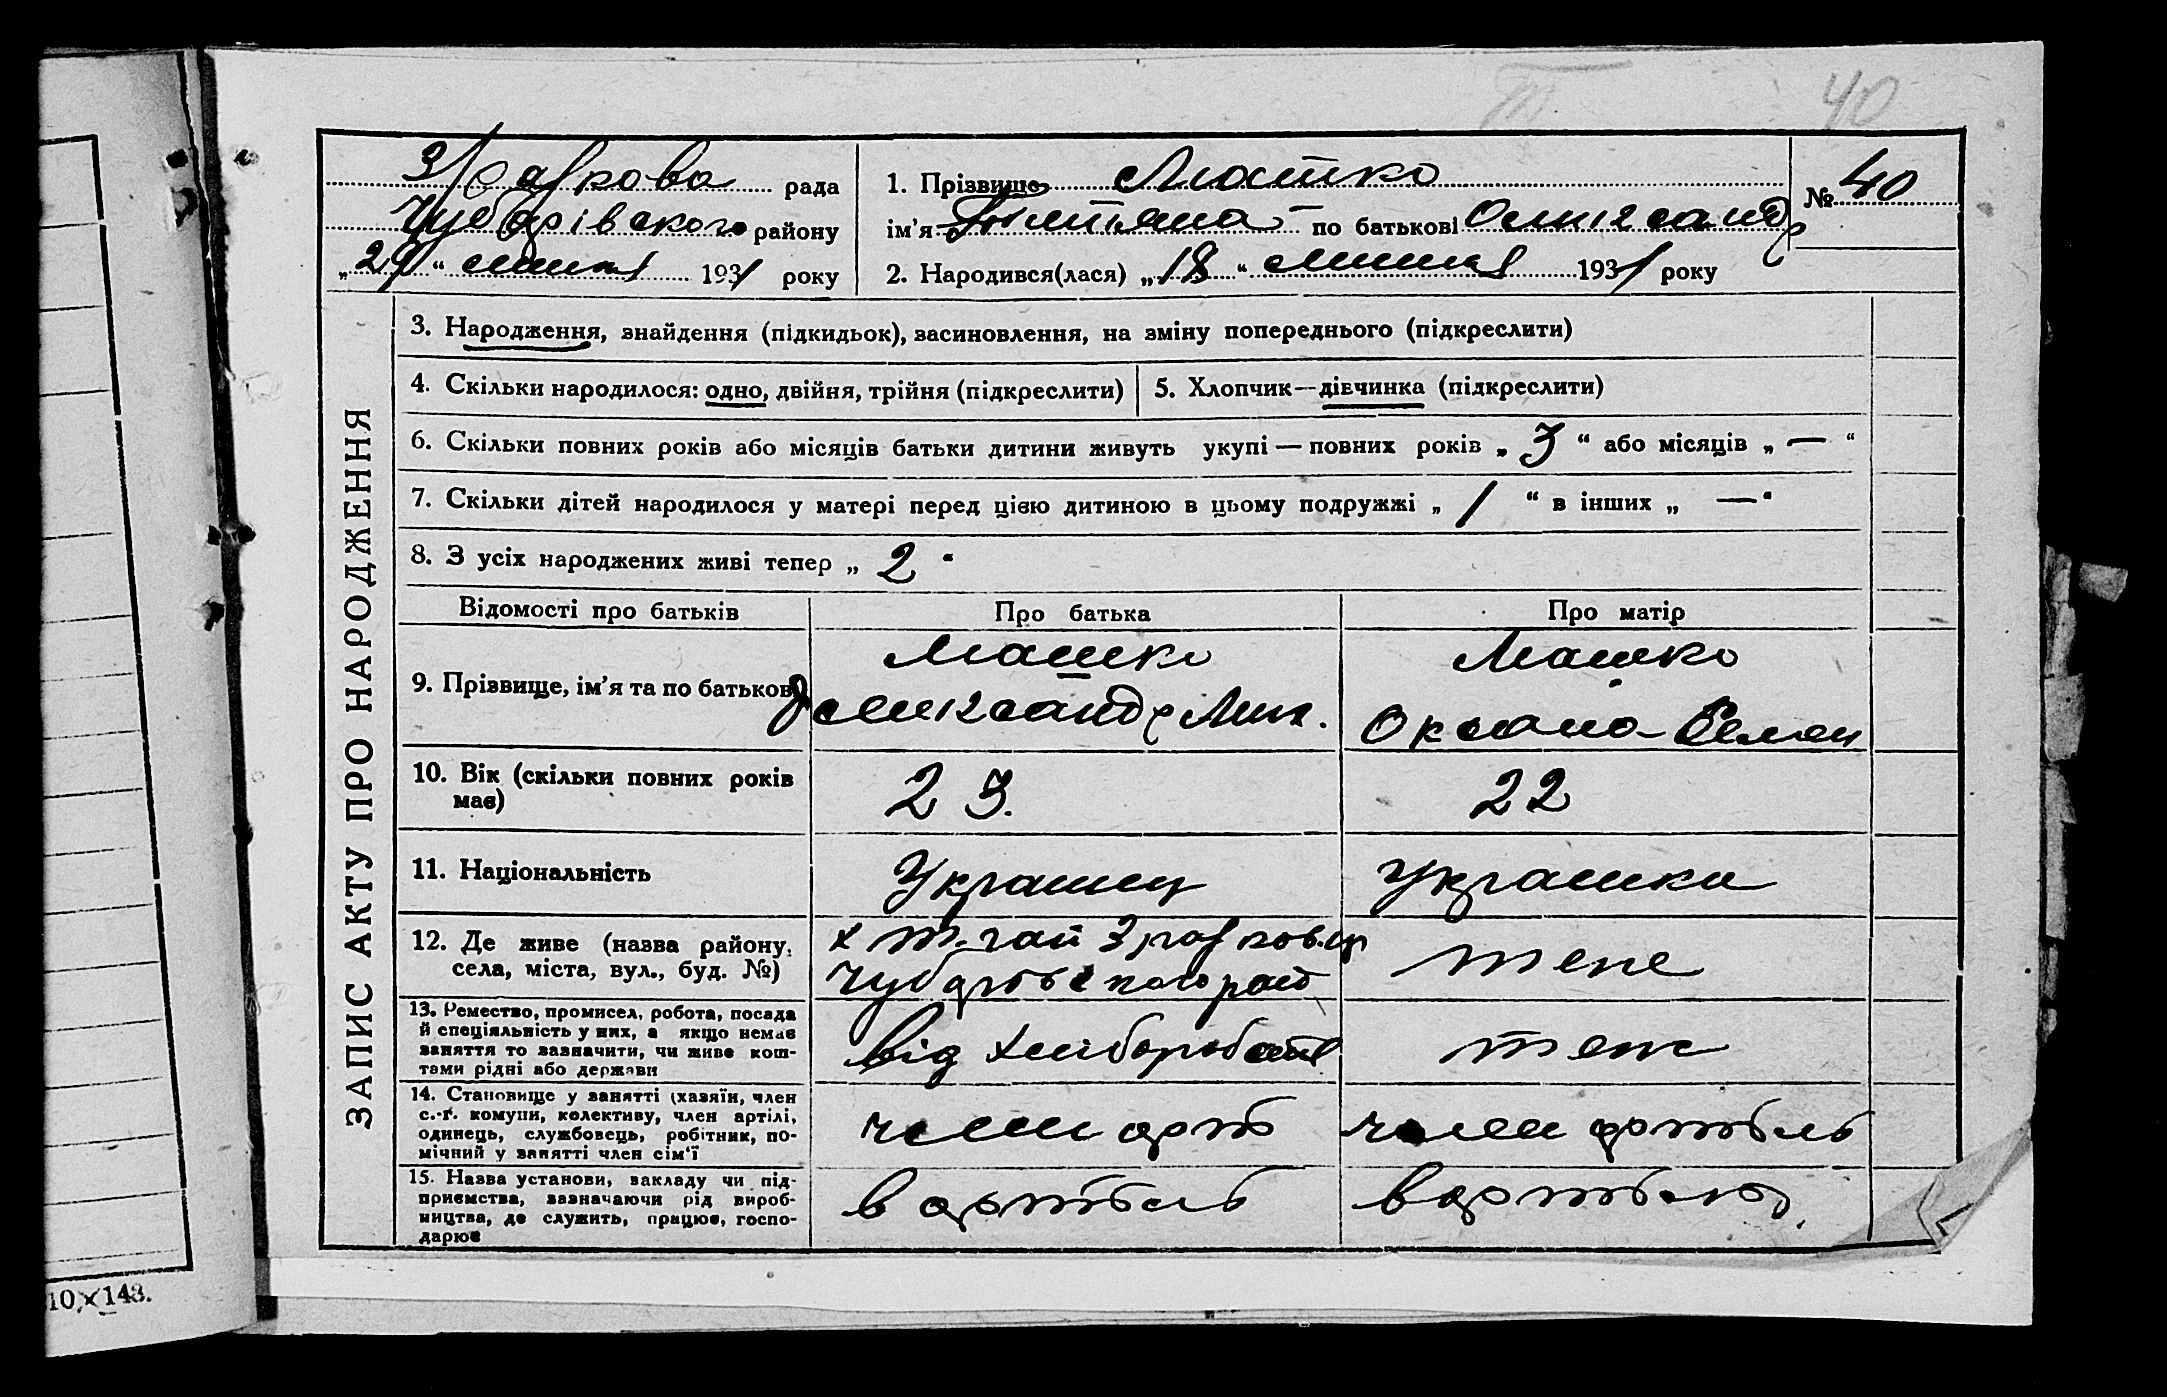 40
рада
Чубарівского району
„29“ 1931 року
1. Прізвище Машко
ім'я Тетяна по батькові Олександр
2. Народився(лася) „18“ 1931 року
№ 40
ЗАПИС АКТУ ПРО НАРОДЖЕННЯ
3. Народження, знайдення (підкидьок), засиновлення, на зміну попереднього (підкреслити)
4. Скільки народилося: одно, двійня, трійня (підкреслити)
5. Хлопчик—дівчинка (підкреслити)
6. Скільки повних років або місяців батьки дитини живуть укупі — повних років „3“ або місяців „—“
7. Скільки дітей народилося у матері перед цією дитиною в цьому подружжі „1“ в інших „—“
8. З усіх народжених живі тепер „2“
Відомості про батьків
Про батька
Про матір
9. Прізвище, ім'я та по батькові
Машко
Олександр Мих.
Машко
Оксана Семен
10. Вік (скільки повних років має)
23.
22
11. Національність
Українец
Українка
12. Де живе (назва району, села, міста, вул., буд. №)
Чубарівского рай
теже
13. Ремество, промисел, робота, посада
й спеціяльність у них, а якщо немає
заняття то зазначити, чи живе кош-
тами рідні або держави
від хліборобств
теж
14. Становище у занятті (хазяїн, член
с.-г. комуни, колективу, член артілі,
одинець, службовець, робітник, по-
мічний у занятті член сім'ї
член арт
член артіль
15. Назва установи, закладу чи під-
приємства, зазначаючи рід вироб-
ництва, де служить, працює, госпо-
дарює
в артіль
в артілю
10×148.